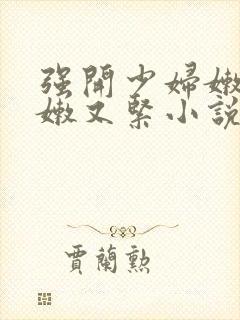 强開少婦嫩
嫩又緊小說
賈蘭勲